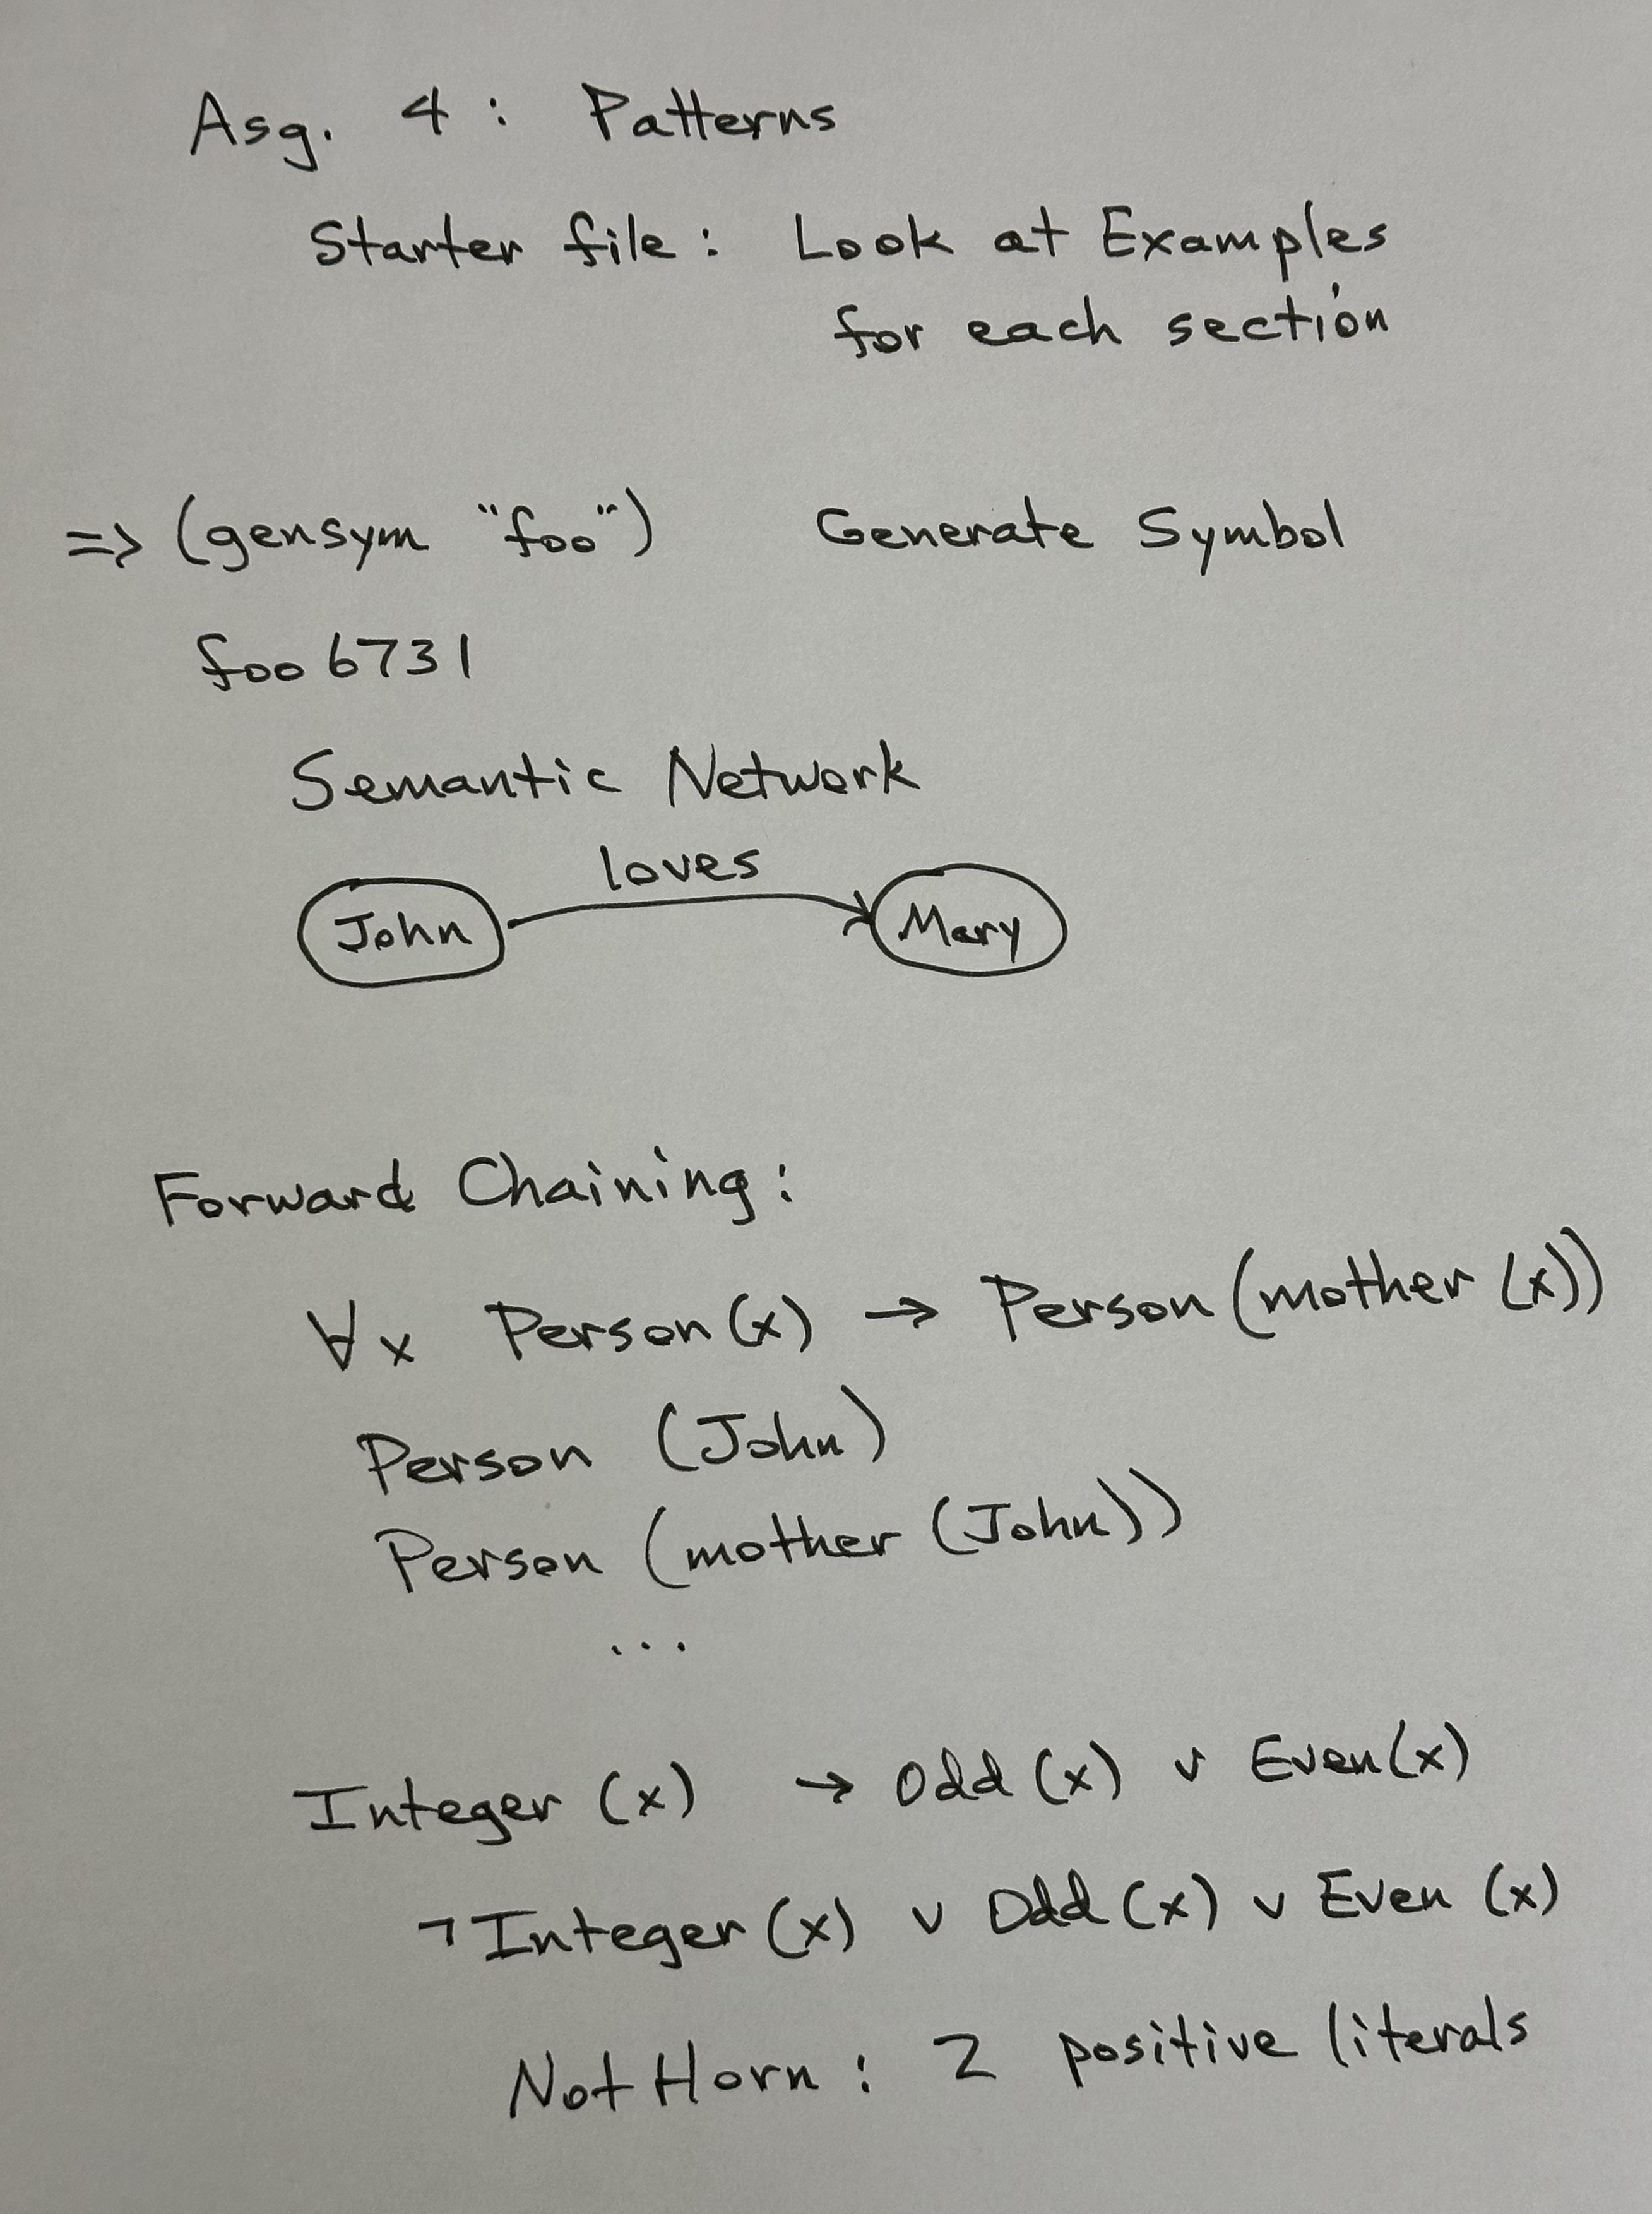 Asg. 4 : Patterns
Starter file : Look at Examples
for each section
=> (gensym "foo") Generate Symbol
foo6731
Semantic Network
loves
John Mary
Forward Chaining :
∀x Person(x) → Person(mother(x))
Person (John)
Person (mother (John))
...
Integer (x) → Odd(x) ∨ Even(x)
¬Integer(x) ∨ Odd(x) ∨ Even (x)
Not Horn : 2 positive literals